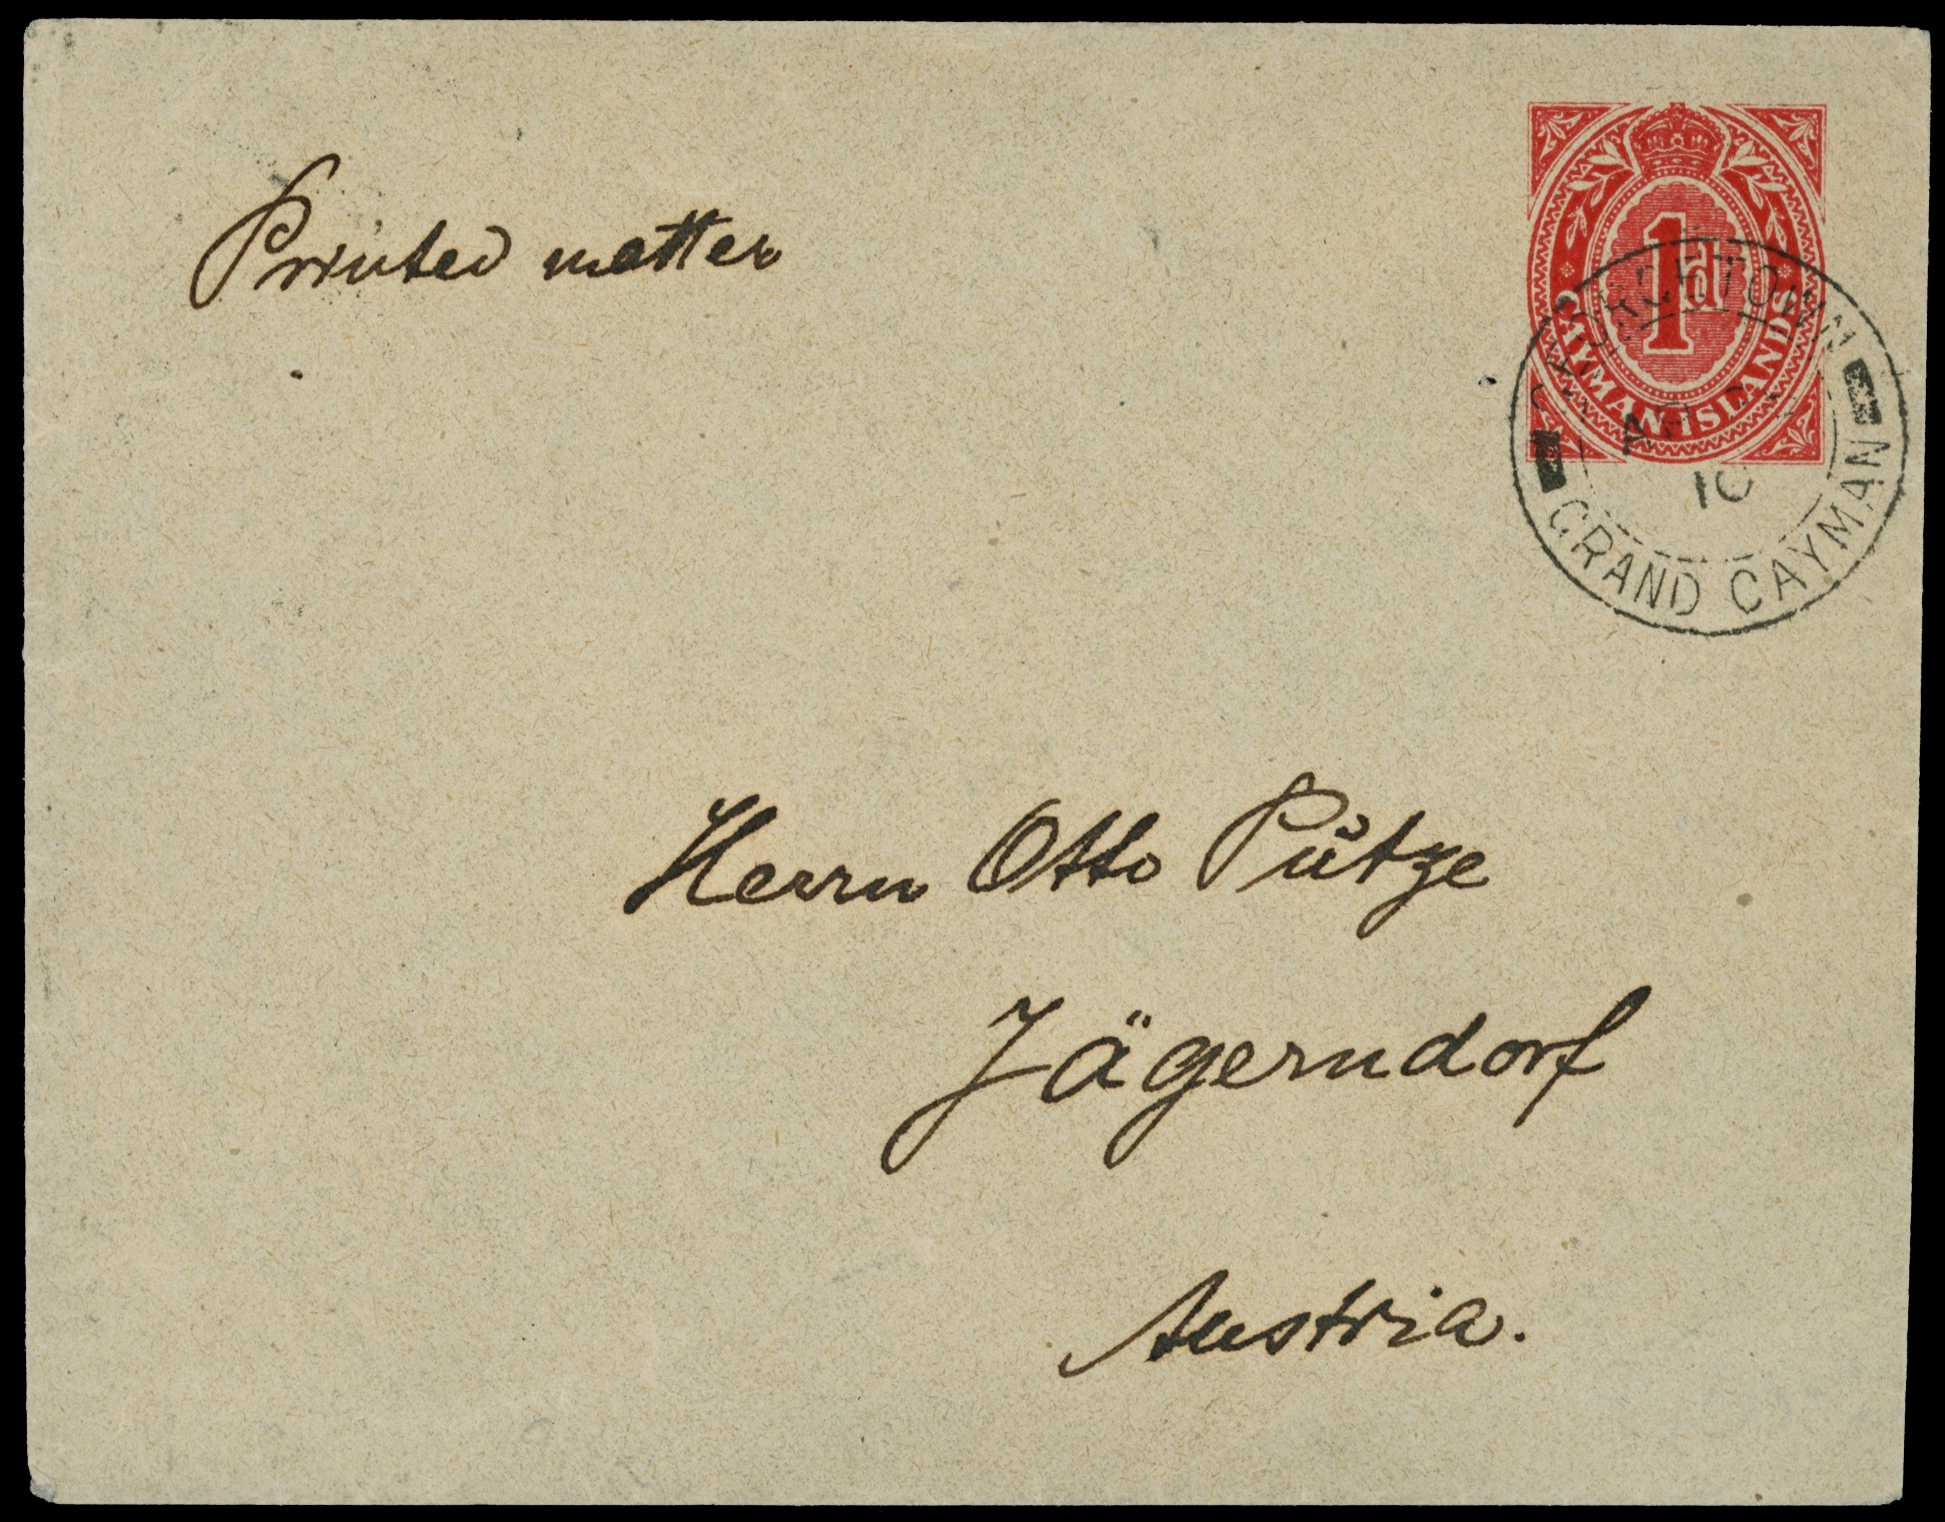 Printed matter
1d
CAYMAN ISLANDS
GEORGETOWN
AP
10
GRAND CAYMAN
Herrn Otto Pütze
Jägerndorf
Austria.